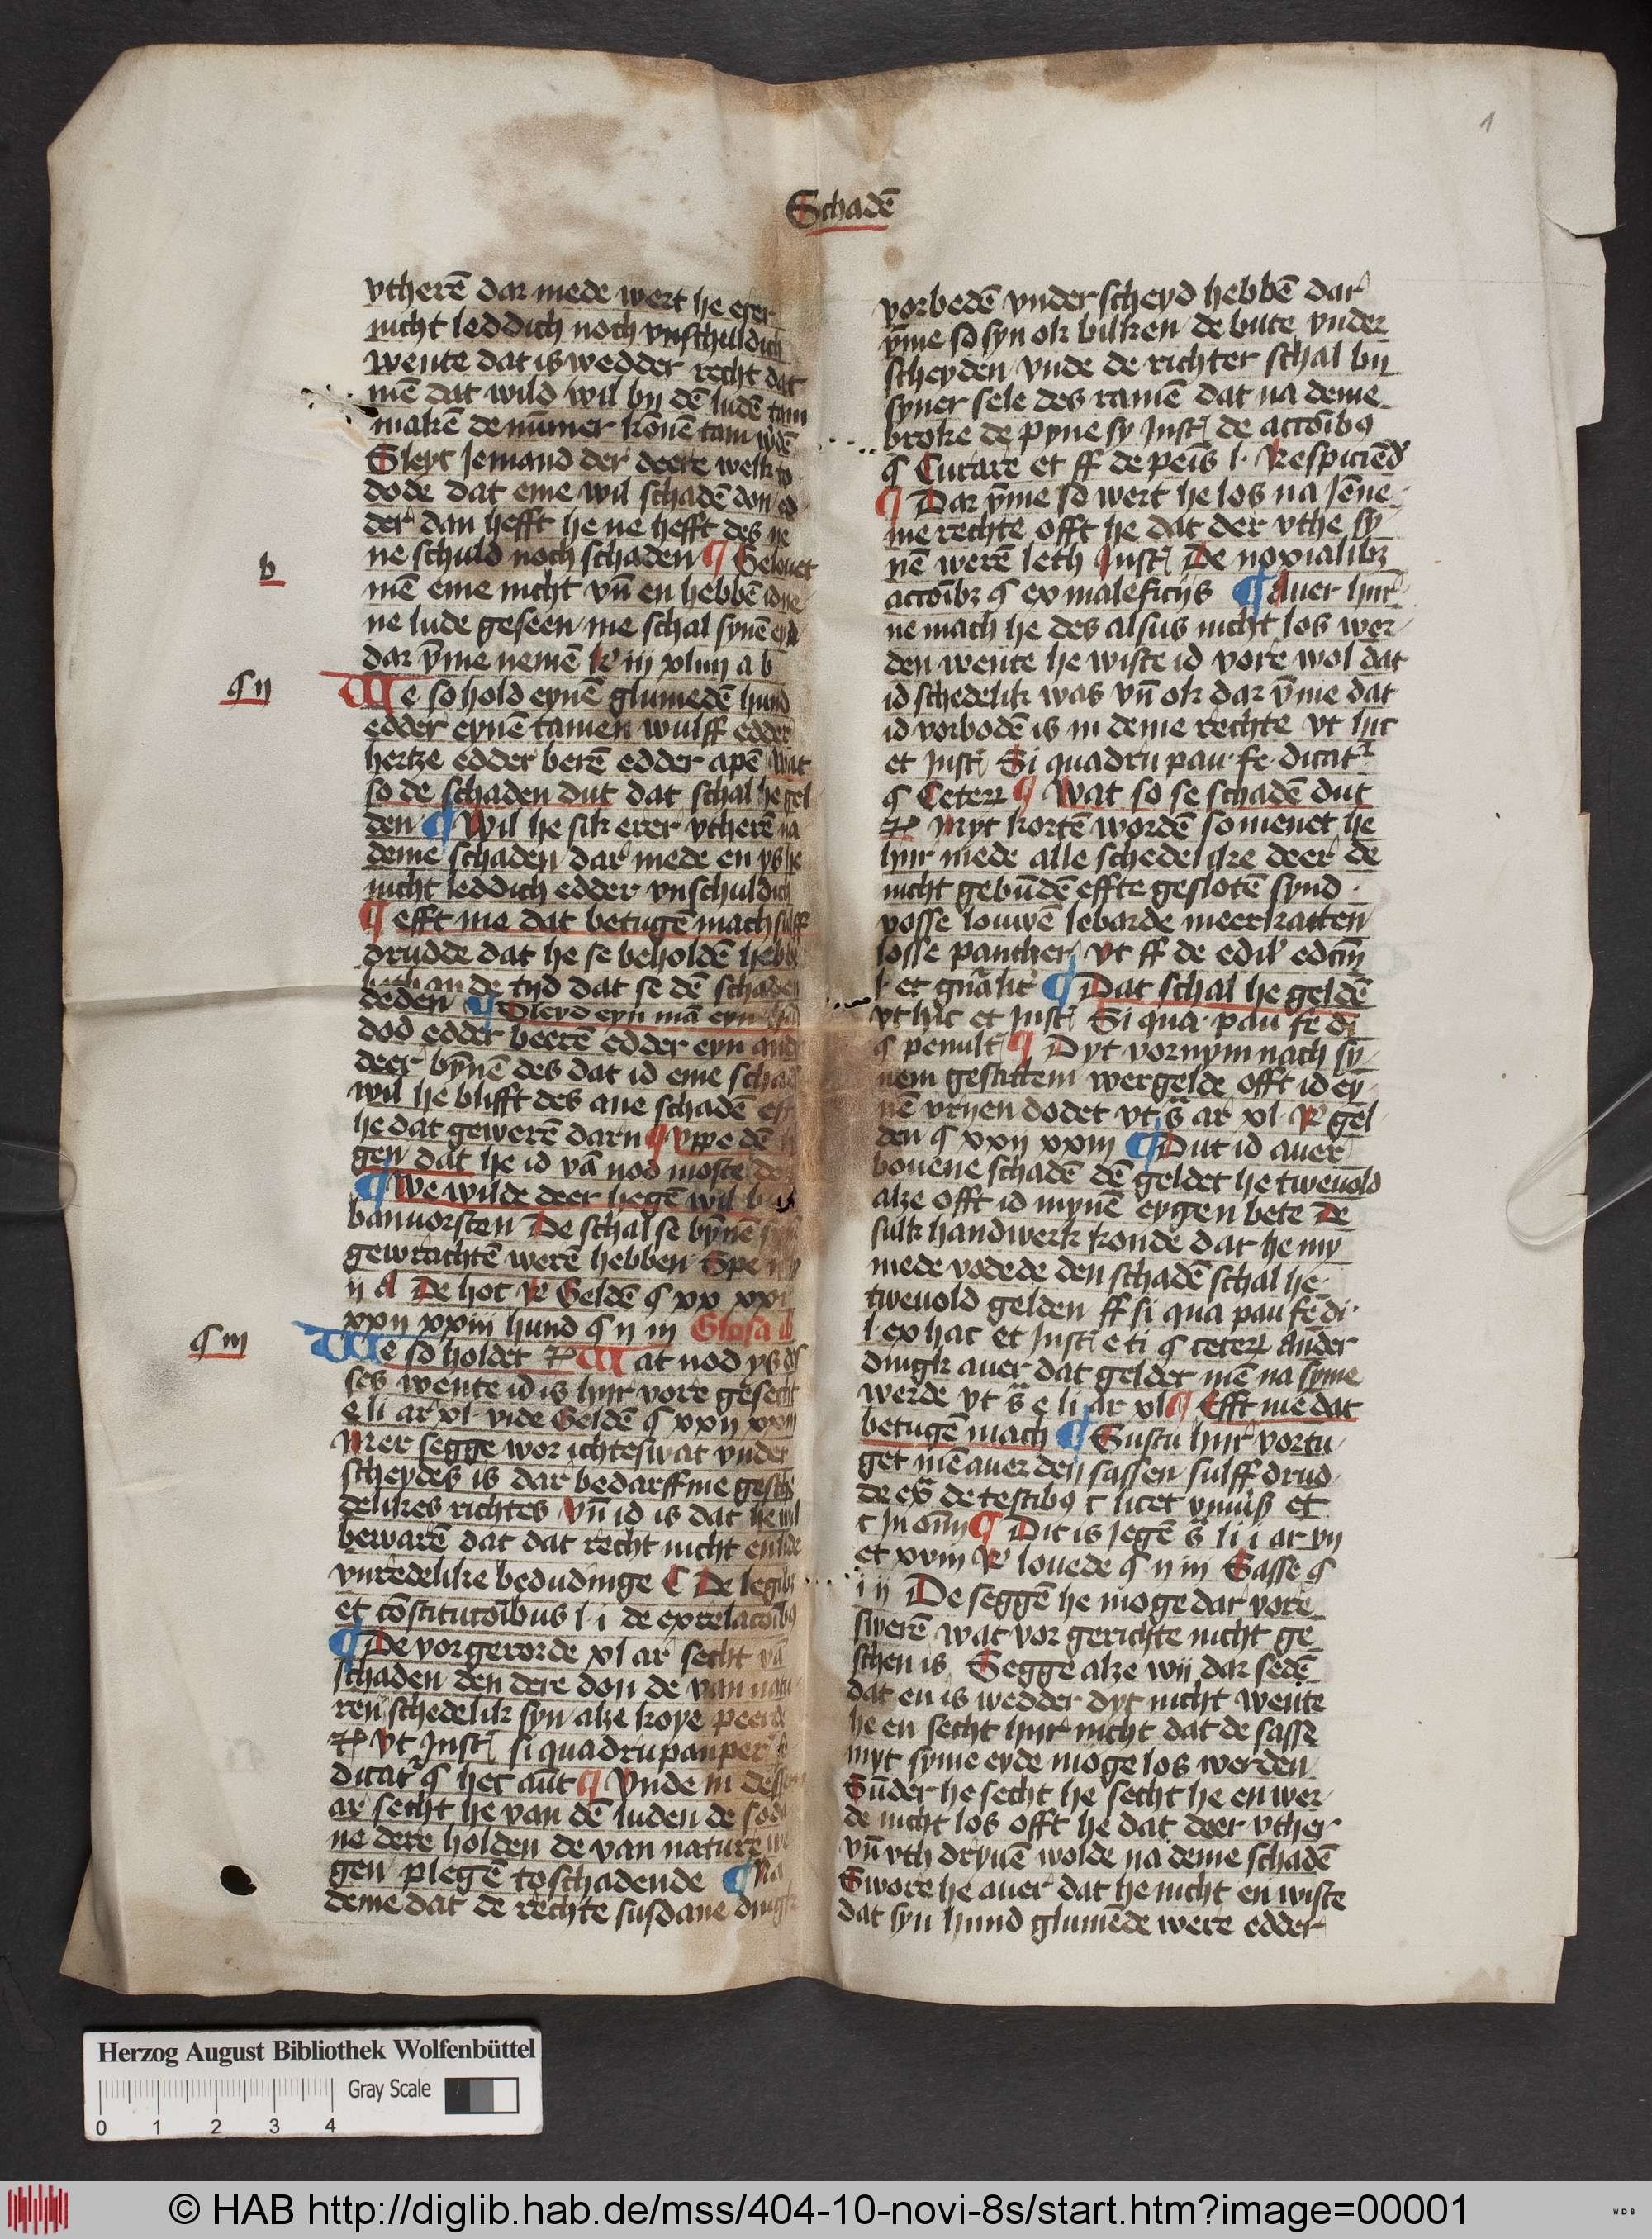 1
Schadē
vtherē dar mede wert he erer
nicht leddich noch vnschuldich
wente dat is wedder recht dat
mē dat wild wil bij dē ludē tam
makē de nūmer konē tam wdē
Sleyt Jemand der deere welk to
dode dat eme wil schadē don ed
der dan hefft he ne hefft des ne
ne schuld noch schaden ¶ Gelouet
b
mē eme nicht vn̄ en hebbē id ne
ne lude geseen me schal synē eyd
dar v̄me nemē li iij xlviij a b
§ ij
We so hold eynē glumedē hund
edder eynē tamen wulff edder
hertze edder berē edder apē wat
so de schaden dut dat schal he gel
den ¶ Wil he sik erer vtherē na
deme schaden dar mede en ys he
nicht leddich edder vnschuldich
¶ efft me dat betugē mach sulff
drudde dat he se beholdē hebbe
beth an de tyd dat se dē schaden
deden ¶ Sleyd eyn mā eyn
dod edder beerē edder eyn ander
deer bȳnē des dat id eme schadē
wil he blifft des ane schadē eft
he dat gewerē darn ¶ vppe dē
gen dat he id vā nod moste
¶ We wilde deer hegē wil
banuorsten De schal se bȳnē
gewrachtē werē hebben Spe
ij a De hot R Geldē § xx xxi
xxij xxiij hund § ij iij Glosa
§ iij
We so holdet Wat nod ys des
ses wente id is hijr vore gesecht
e li ar xl vide Geldē § xxij xxiij
Mer segge wor ichteswat vnder
scheydes is dar bedarff me gesche
delikes richtes vn̄ id is dat he wil
bewarē dat dat recht nicht en lide
vnredelike bedudinge C De legibȝ
et cōstitutoībus l i de exrelatoībȝ
¶ De vorgerorde xl ar secht vā
schaden den dere don de van natu
ren schedelik syn alze koye peerde
Vt Inst si quadrupau per fe
dicatr § hec aūt ¶ Vnde in dessen
ar secht he van dē luden de sod
ne dere holden de van nature
gen plegē to schadende ¶ Na
deme dat de rechte susdane dingk
vorbedē vnderscheyd hebbē dar
v̄me so syn ok bilken de bute vnder
scheyden vnde de richter schal bij
syner sele des ramē dat na deme
broke de pyne sy Inst de actoībȝ
§ Curare et ff de peīs l. Respiciēd
¶ Dar v̄me so wert he los na Jēne
me rechte offt he dat der vthe sy
nē werē leth Inst De noxialibȝ
actoībȝ § ex maleficijs ¶ Auer hijr
ne mach he des alsus nicht los wer
den wente he wiste id vore wol dat
id schedelik was vn̄ ok dar v̄me dat
id vorbodē is in deme rechte vt hic
et Inst Si quadru pau fe dicatr
§ Ceterȝ ¶ Wat so se schadē dut
Myt kortē wordē so menet he
hijr mede alle schedelike deer de
nicht gebūdē effte geslotē synd
vosse louwē lebarde meerkatten
losse panther vt ff de edil edcīn
l. et gn̄alit ¶ Dat schal he geldē
vt hic et Inst Si qua pau fe di
§ penult ¶ Dyt vornym nach sy
nem gestuttem wergelde offt id ey
nē vrijen dodet vt s̄ ar xl R gel
den § xxij xxiij ¶ Dut id auer
bouene schadē dē geldet he tweuold
alze offt id mynē eygen bete De
sulk handwerk konde dat he my
mede vodede den schadē schal he
tweuold gelden ff si qua pau fe di
l. ex hac et Inst e ti § ceterȝ Ander
dingk auer dat geldet mē na syme
werde vt s̄ e li ar xl ¶ Efft me dat
betugē mach ¶ Sustu hijr vortu
get mē auer den sassen sulff drud
de ex̄ de testibȝ c licet vniūs et
c In om̄ ¶ Dit is Jegē s̄ li i ar vij
et xviij R louede § ij iij Sasse §
i ij De seggē he moge dar vore
swerē wat vor gerichte nicht ge
schen is Segge alze wij dar sedē
dat en is wedder dyt nicht wente
he en secht hijr nicht dat de sasse
myt syme eyde moge los werden
Sūder he secht he secht he en wer
de nicht los offt he dat deer vther
vn̄ vth dryuē wolde na deme schadē
Swore he auer dat he nicht en wiste
dat syn hund glumēde were edder
Herzog August Bibliothek Wolfenbüttel
Gray Scale
0 1 2 3 4
© HAB http://diglib.hab.de/mss/404-10-novi-8s/start.htm?image=00001
WDB